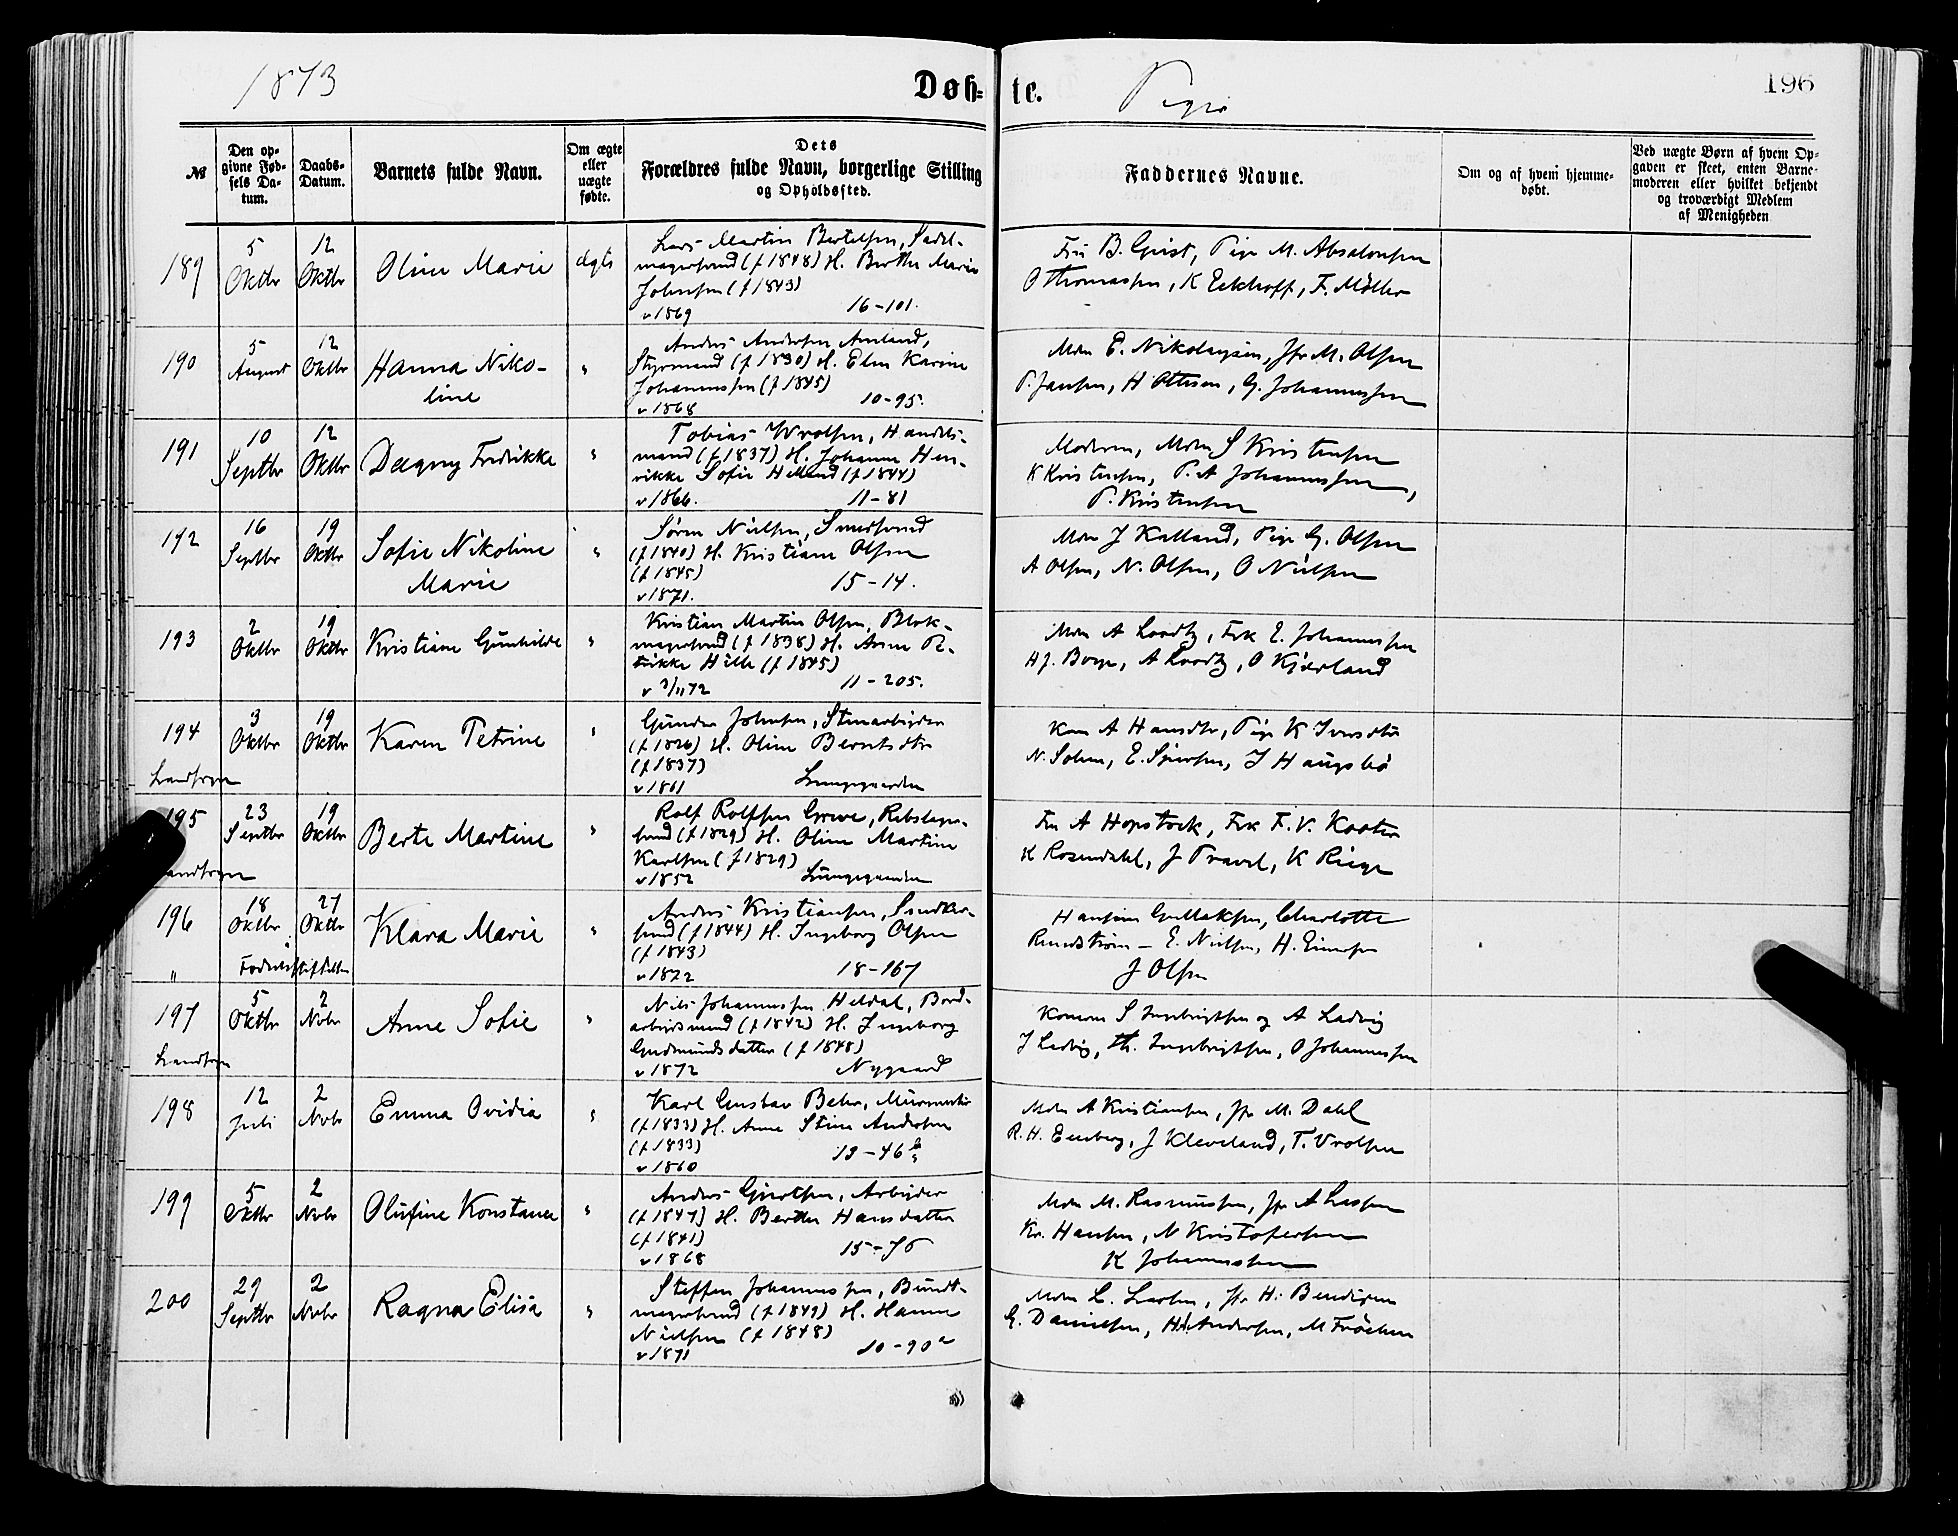 1873
Døb-
te.
Piger
196
№
Den op-
givne Fød-
sels Da-
tum.
Daabs-
Datum.
Barnets fulde Navn.
Om ægte
eller
uægte
fødte.
Dets
Forældres fulde Navn, borgerlige Stilling
og Opholdssted.
Faddernes Navne.
Om og af hvem hjemme-
døbt.
Ved uægte Børn af hvem Op-
gaven er skeet, enten Barne-
moderen eller hvilket bekjendt
og troværdigt Medlem
af Menigheden
189
5
Oktbr
12
Oktbr
Oline Marie
ægte
Lars Martin Bertelsen, Sadel-
magersvend (f 1848) H. Berthe Marie
Johnsen (f 1843)
v 1869 16-101.
Fru B. Geist, Pige M. Absalonsen
O Thomassen, K Eckhoff, F. Møller
190
5
August
12
Oktbr
Hanna Niko-
line
"
Anders Andersen Amland,
Styrmand (f 1830) H. Elen Karine
Johannessen (f 1845)
v 1868 10-95.
Mdm E. Nikolaysen, Jfr M. Olsen
P. Jansen, H Ottesen, G. Johannessen
191
10
Septbr
12
Oktbr
Dagny Fredrikke
"
Tobias Wrolsen, Handels-
mand (f 1837) H. Johanne Hen-
rikke Sofie Helland (f 1844)
v 1866. 11-81
Moderen, Mdm S Kristensen
K Kristensen, P. A Johannessen,
P. Kristensen
192
16
Septbr
19
Oktbr
Sofie Nikoline
Marie
"
Søren Nielsen, Smedsvend
(f 1840) H. Kristiane Olsen
(f 1845)
v 1871. 15-14.
Mdm J Kalland, Pige G. Olsen
A Olsen, N. Olsen, O Nielsen
193
2
Oktbr
19
Oktbr
Kristiane Gunhilde
"
Kristian Martin Olsen, Blok-
magersvend (f 1838) H. Anne
Hille (f 1845)
v 3/11 72 11-205.
Mdm A Loodtz, Frk E. Johannessen
H J. Borge, A Loodtz, O Kjærland
194
3
Oktbr
19
Oktbr
Karen Petrine
"
Gunder Johnsen, Stenarbeider
(f 1826) H. Oline Berntsdtr
(f 1837)
v 1861 Lungegaarden
Landsogn
Kone A Hansdtr, Pige K Iversdtr
N. Solem, E. Sjursen, J Haugsbø
195
23
Septbr
19
Oktbr
Berte Martine
"
Rolf Rolfsen Greve, Rebslager-
svend (f 1829) H. Oline Martine
Karlsen (f 1829)
v 1852 Lungegaarden
Landsogn
Fru A Hopstock, Frk F. V. Koster
K Rosendahl, J Travel, K Riege
196
18
Oktbr
27
Oktbr
Klara Marie
"
Anders Kristiansen, Snedker-
svend (f 1844) H. Ingeborg Olsen
(f 1843)
v 1872 18-167
"
Fødselsstiftelsen
Hansine Gullaksen, Charlotte
Rundstrøm - E. Nielsen, H. Einersen
J Olsen
197
5
Oktbr
2
Nvbr
Anne Sofie
"
Nils Johannessen Heldal, Bord-
arbeidsmand (f 1842) H. Ingeborg
Gudmundsdatter (f 1848)
v 1872 Nygaard
Landsogn
Konerne S Ingebrigtsen og A Ladvig
J Ladvig, Th. Ingebrigtsen, O Johannessen
198
12
Juli
2
Nvbr
Emma Ovidia
"
Karl Gustav Behr, Murmester
(f 1833) H. Anne Stine Andersen
(f 1833)
v 1860 13-46
Mdm A Kristiansen, Jfr M. Dahl
R. H. Eenberg, J Kleveland, T. Vrolsen
199
5
Oktbr
2
Nvbr
Olufine Konstance
"
Anders Gjertsen, Arbeider
(f 1847) H. Berthe Hansdatter
(f 1841)
v 1868 15-76
Mdm M. Rasmussen, Jfr A Lassen
Kr. Hansen, N Kristofersen
K Johannessen
200
29
Septbr
2
Nvbr
Ragna Elisa
"
Steffen Johannessen, Bundt-
magersvend (f 1849) H. Hanne
Nielsen (f 1848)
v 1871 10-90 a
Mdm L. Larsen, Jfr H. Bendixen
G. Danielsen, H. Andersen, M Frøchen